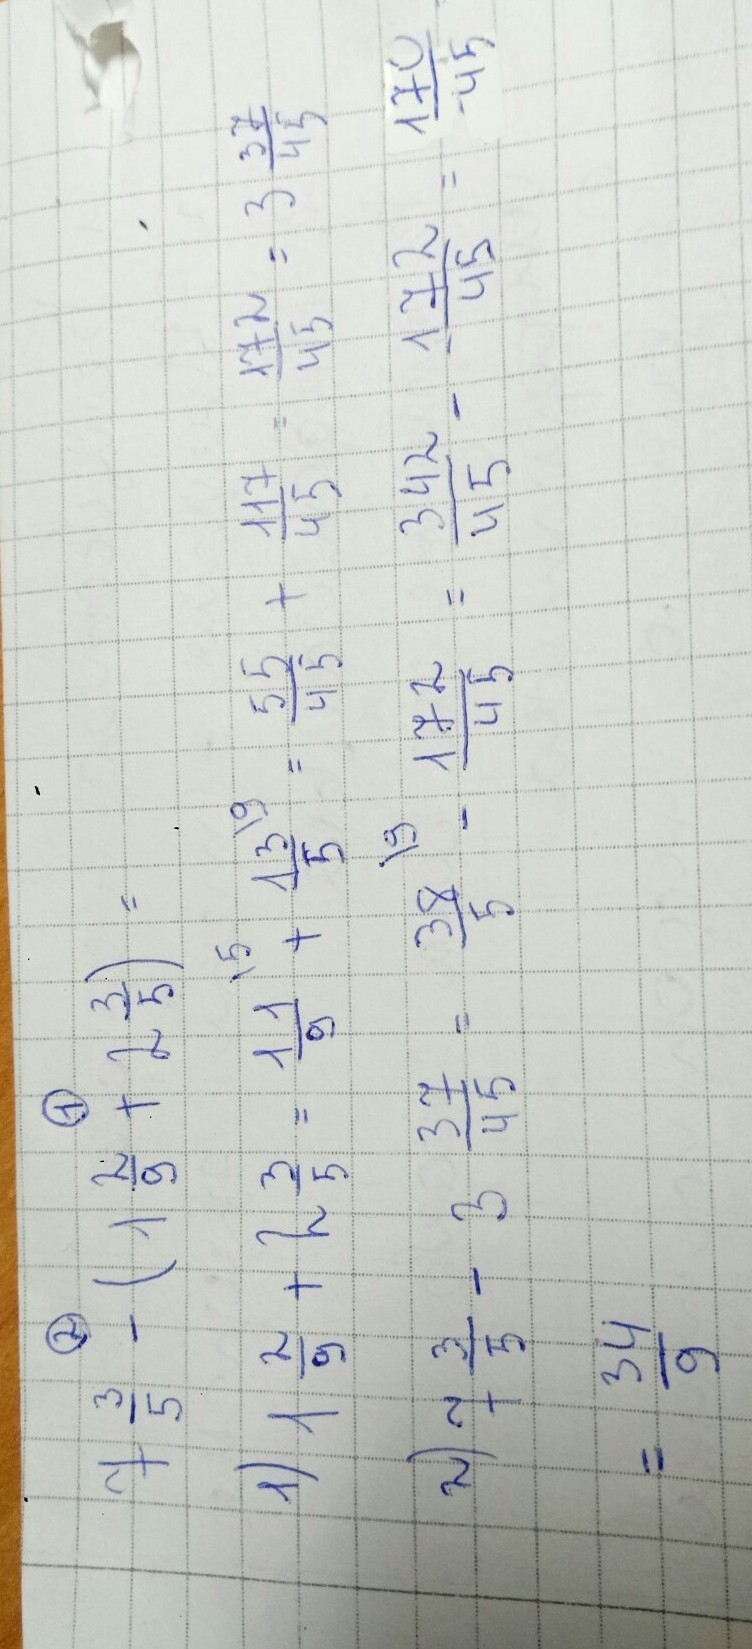 ② ①
7 3/5 - (1 2/9 + 2 3/5) =
1) 1 2/9 + 2 3/5 = 11/9 \5 + 13/5 \9 = 55/45 + 117/45 = 172/45 = 3 37/45
2) 7 3/5 - 3 37/45 = 38/5 \9 - 172/45 = 342/45 - 172/45 = 170/45
= 34/9